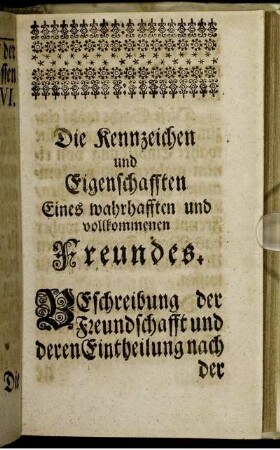 der
ften
VI.
Die
Die Kennzeichen
und
Eigenschafften
Eines wahrhafften und
vollkommenen
Freundes.
BEschreibung der
Freundschafft und
deren Eintheilung nach
der